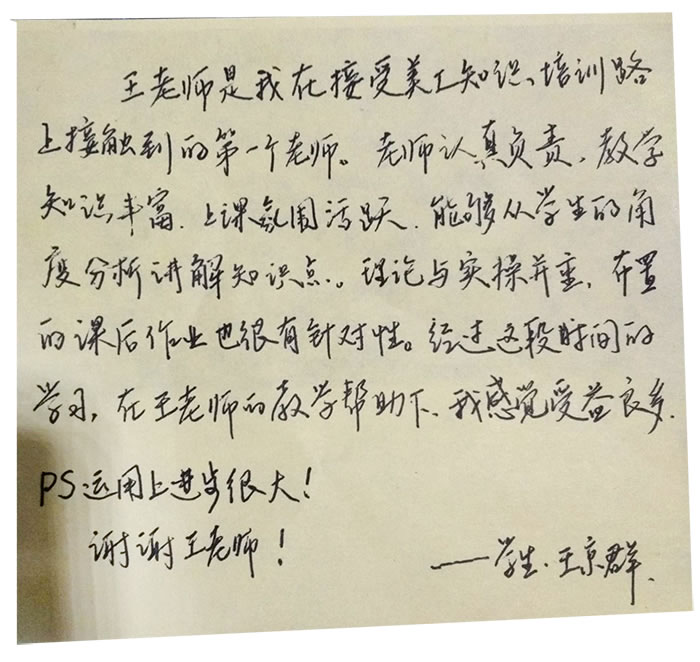 王老师是我在接受美工知识、培训路
上接触到的第一个老师。老师认真负责,教学
知识丰富,上课氛围活跃,能够从学生的角
度分析讲解知识点。理论与实操并重,布置
的课后作业也很有针对性。经过这段时间的
学习,在王老师的教学帮助下,我感觉受益良多.
PS运用上进步很大!
谢谢王老师!
——学生.王京群.